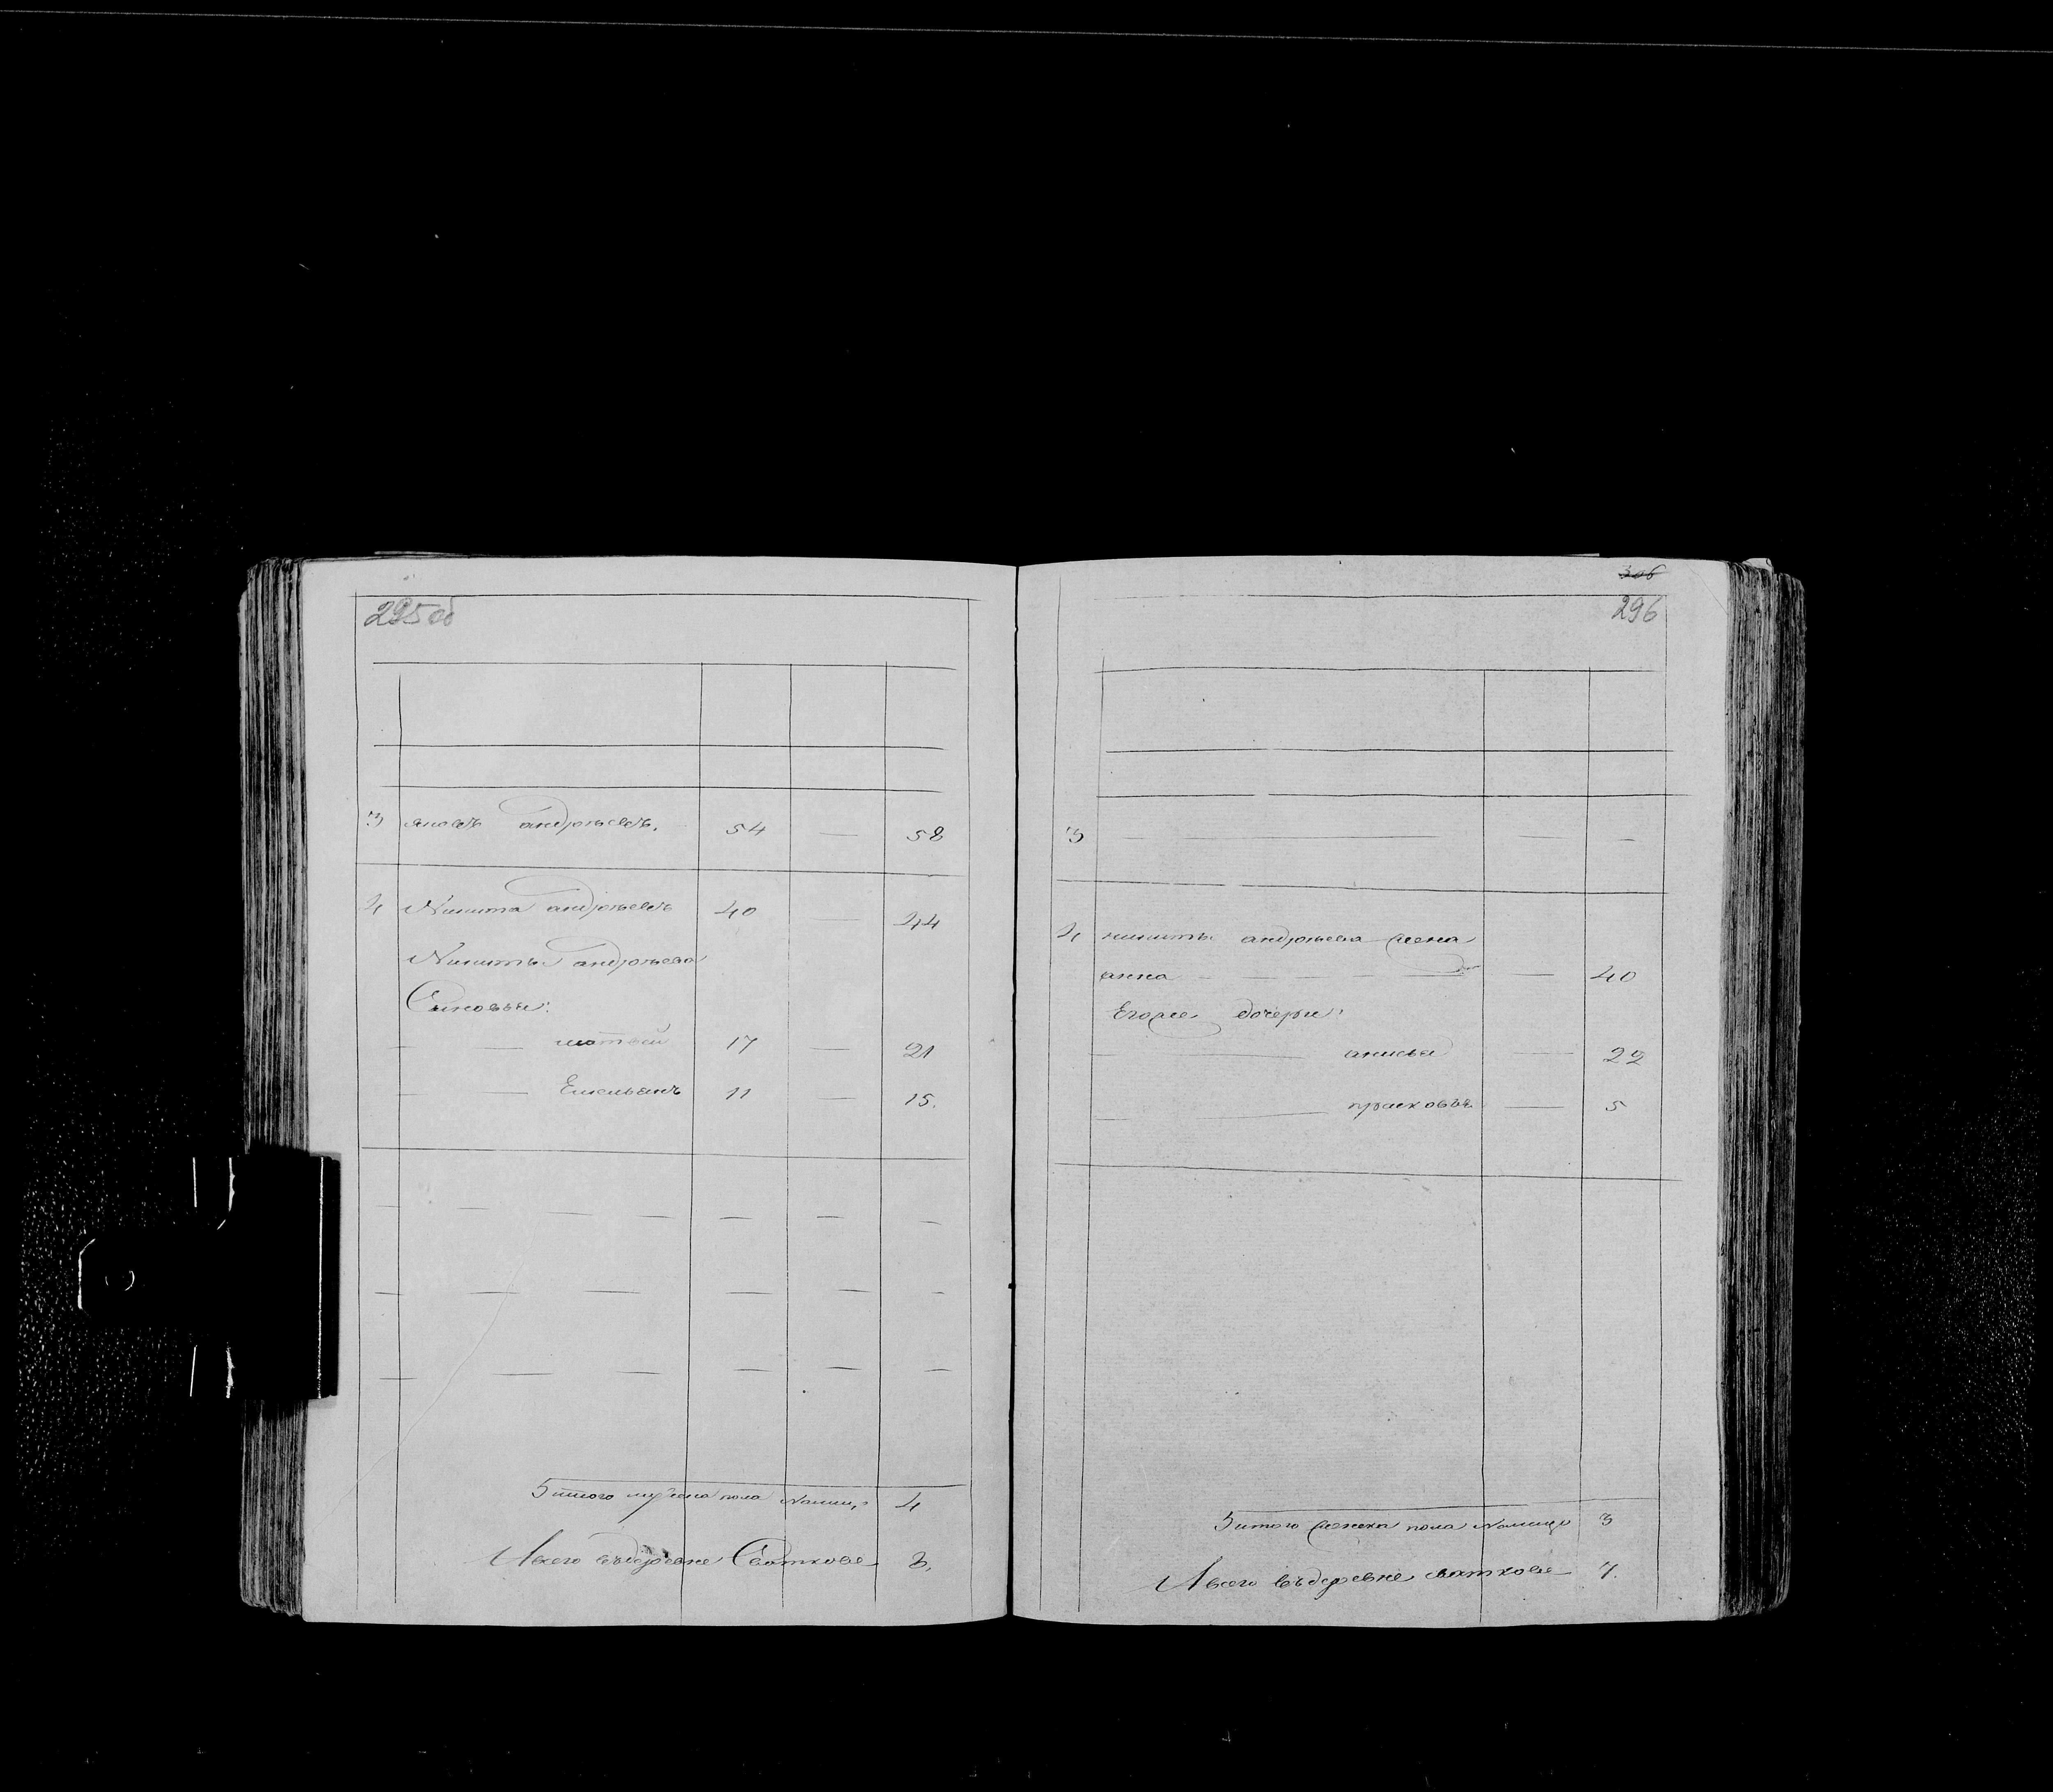 295 об
3 яковъ андреевъ. 54 — 58
4 Никита андреевъ 40 — 44
Никиты андреева
Сыновья:
матвей 17 — 21
Емельянъ 11 — 15.
Итого мужска пола налицо 4
Всего въ деревне Святкове 8.
306
296
3 — — —
4 никиты андреева жена
анна — 40
Егоже дочери:
анисья — 22
прасковья — 5
Итого женска пола налицо 3
Всего въ деревне святкове 7.